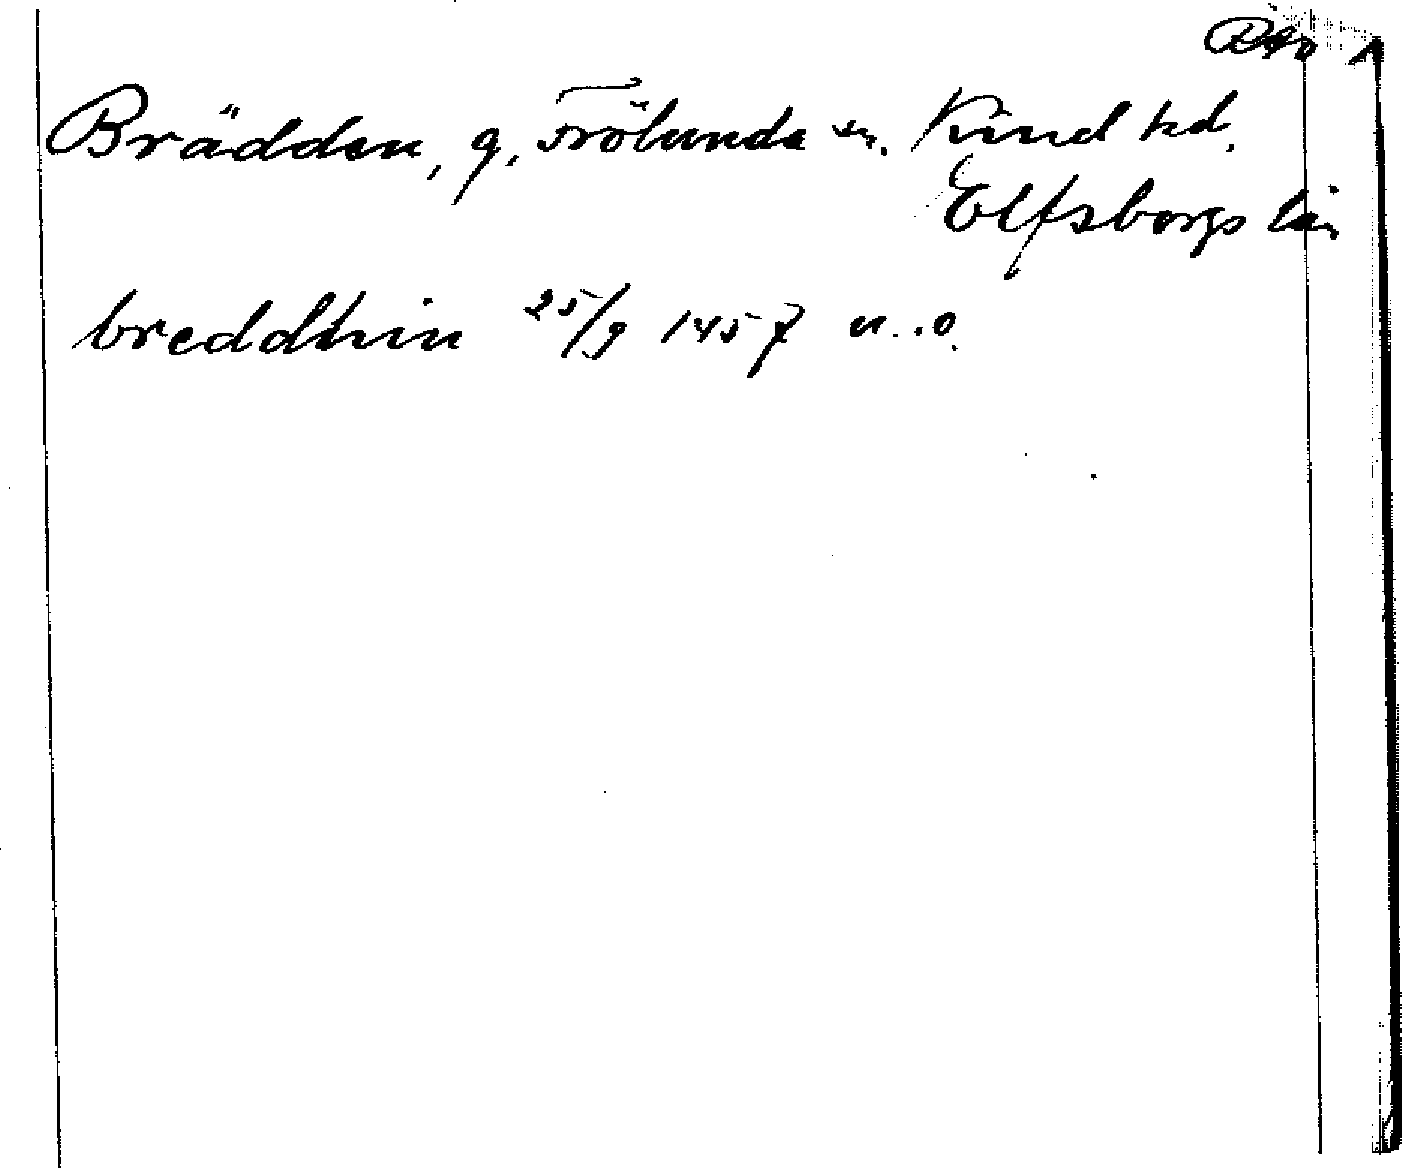 Brädden, g, Frölunda sn. Kind hd.
Elfsborgs län
breddhin 25/9 1457 n..o.